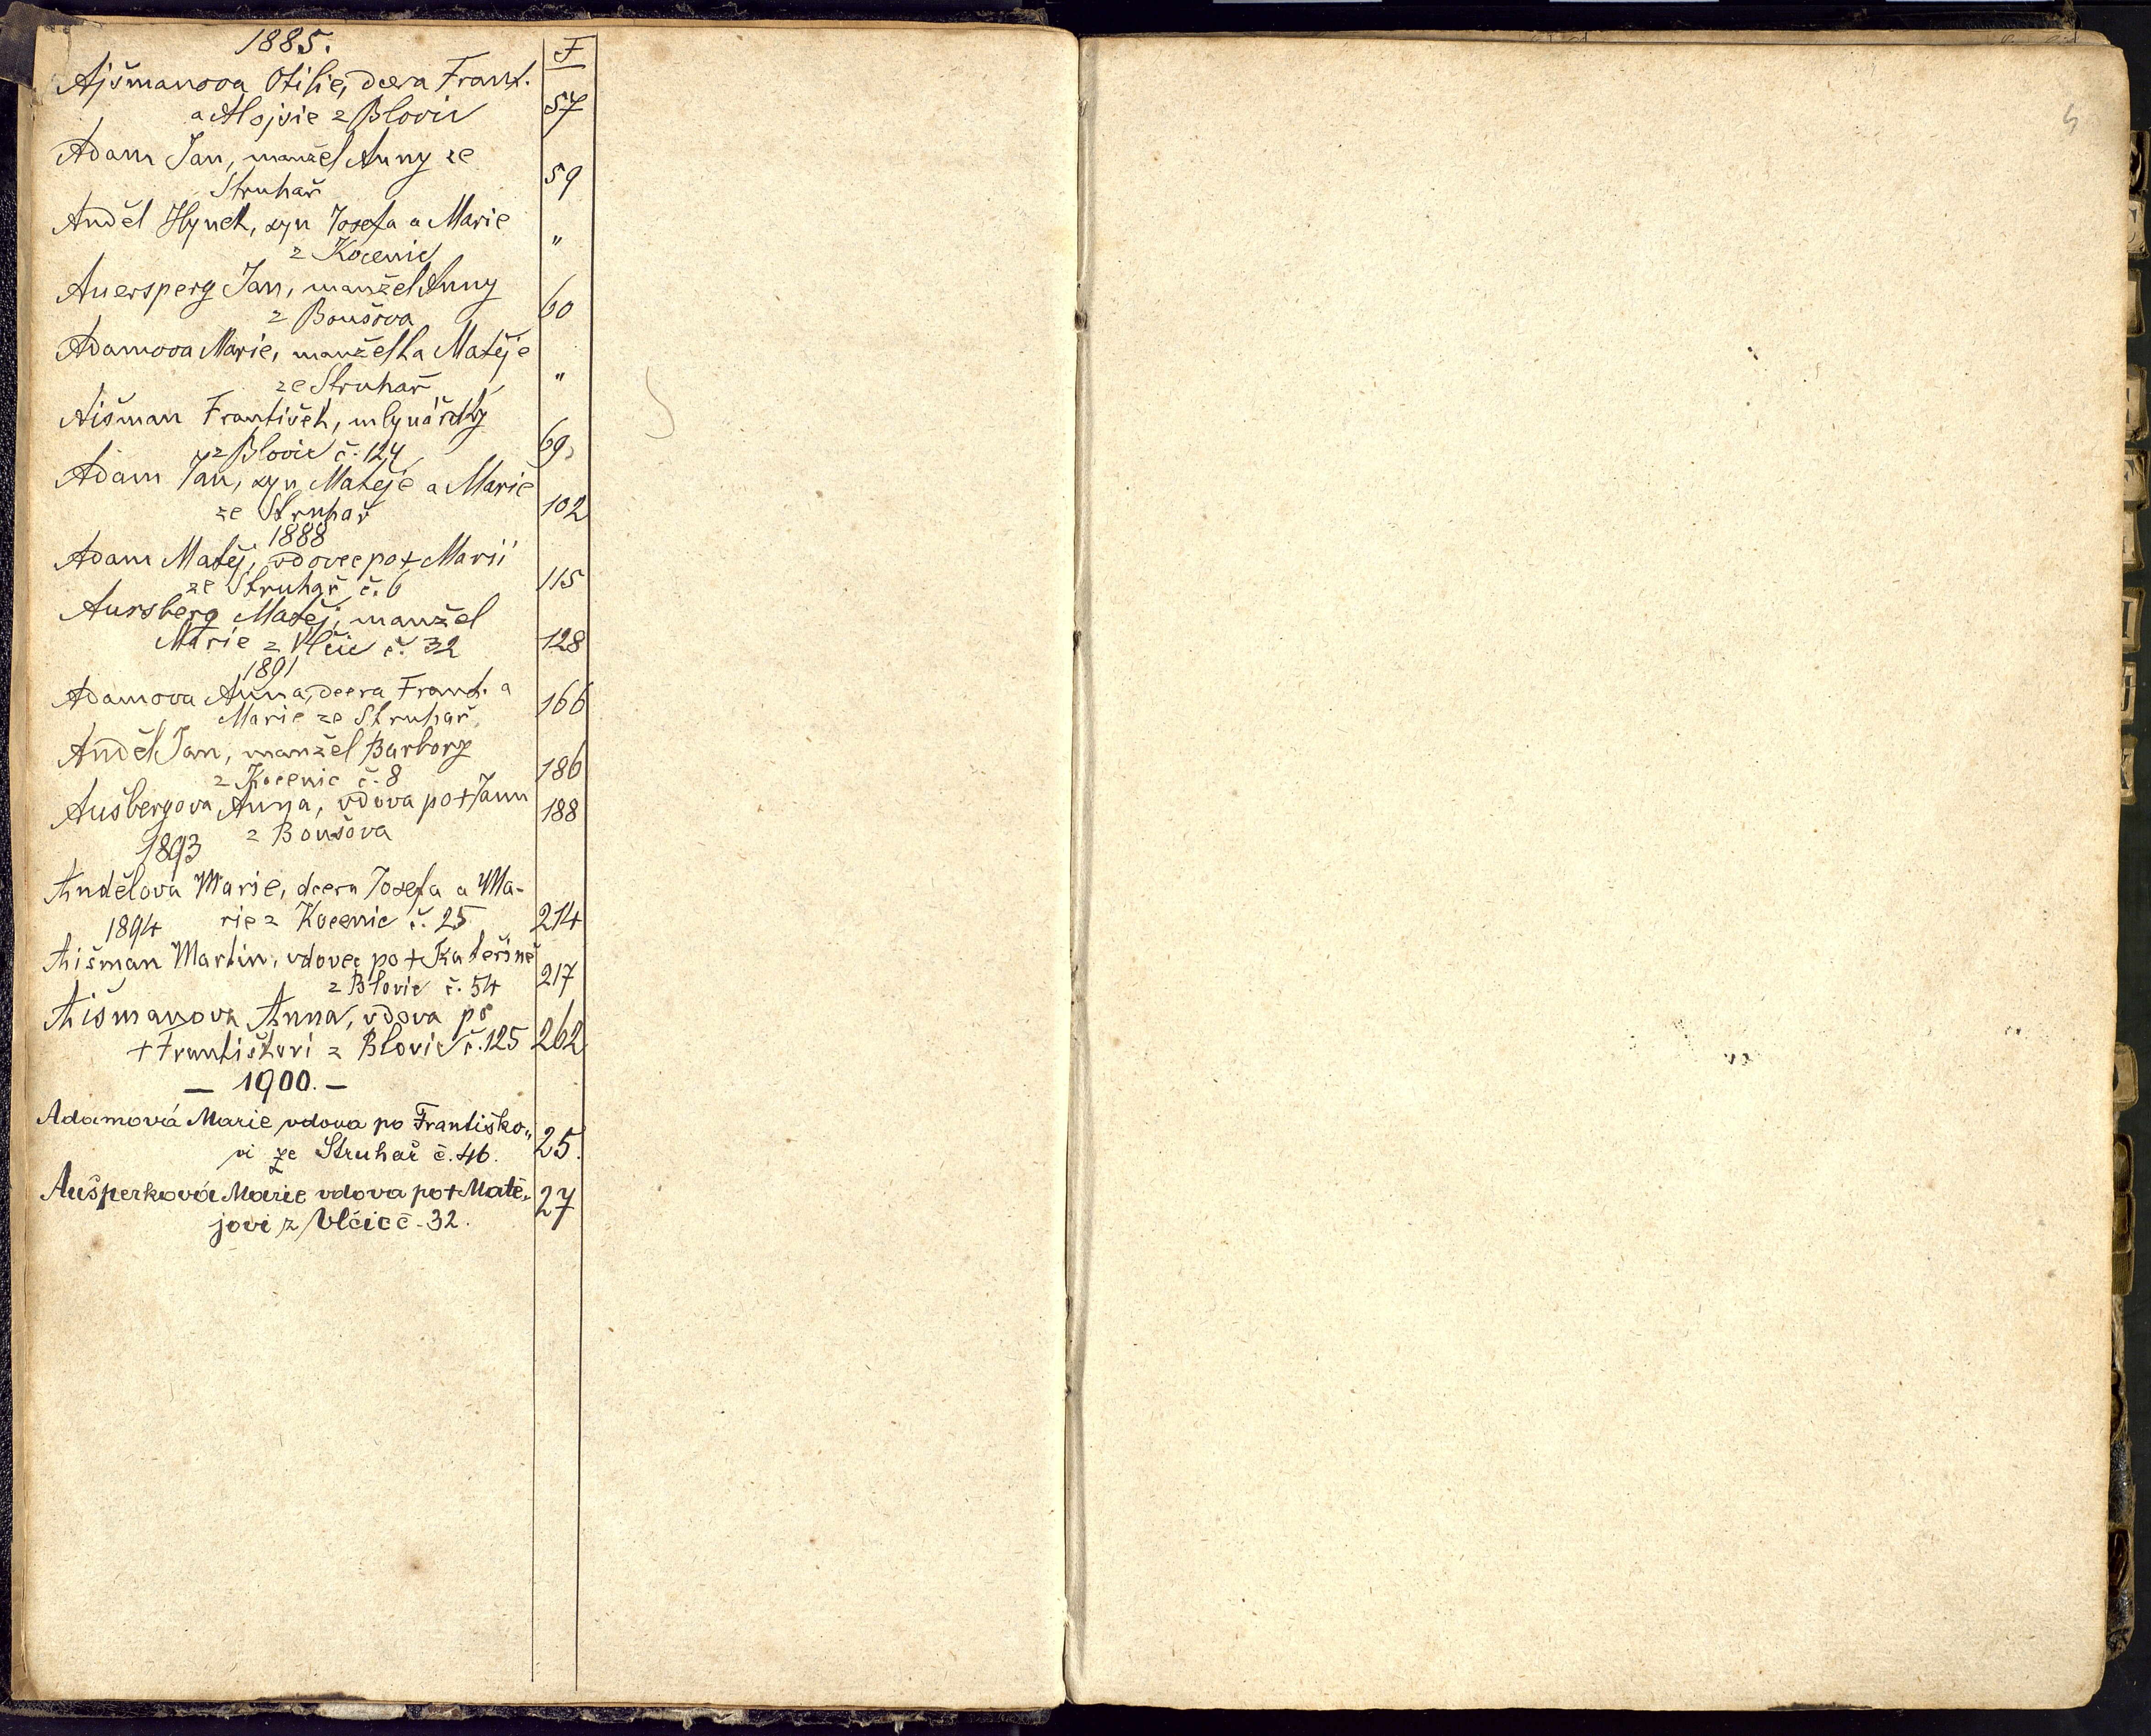 1885. F
Ajšmanova Otilie, dcera Frant.
a Aloisie z Blovic 57
Adam Jan, manžel Anny ze
Struhař 59
Anděl Hynek, syn Josefa a Marie
z Kocenic "
Auersperg Jan, manžel Anny
z Boušova 60
Adamova Marie, manželka Matěje
ze Struhař "
Aišman František, mlynářský
z Blovic č. 124 69
Adam Jan, syn Matěje a Marie
ze Struhař 102
1888
Adam Matěj, vdovec po + Marii
ze Struhař č. 6 115
Aursberg Matěj, manžel
Marie z Vlčic č. 32 128
1891
Adamova Anna, dcera Frant. a
Marie ze Struhař 166
Anděl Jan, manžel Barbory
z Kocenic č. 8 186
Aušbergova Anna, vdova po + Janu
z Boušova 188
1893
Andělová Marie, dcera Josefa a Ma-
rie z Kocenic č. 25 214
1894
Aišman Martin, vdovec po + Kateřině
z Blovic č. 54 217
Aišmanova Anna, vdova po
+ Františkovi z Blovic č. 125 262
— 1900. —
Adamová Marie vdova po Františko„
vi ze Struhař č. 46. 25.
Aušperková Marie vdova po + Matě„
jovi z Vlčic č. 32. 27
5
C
F
I
K